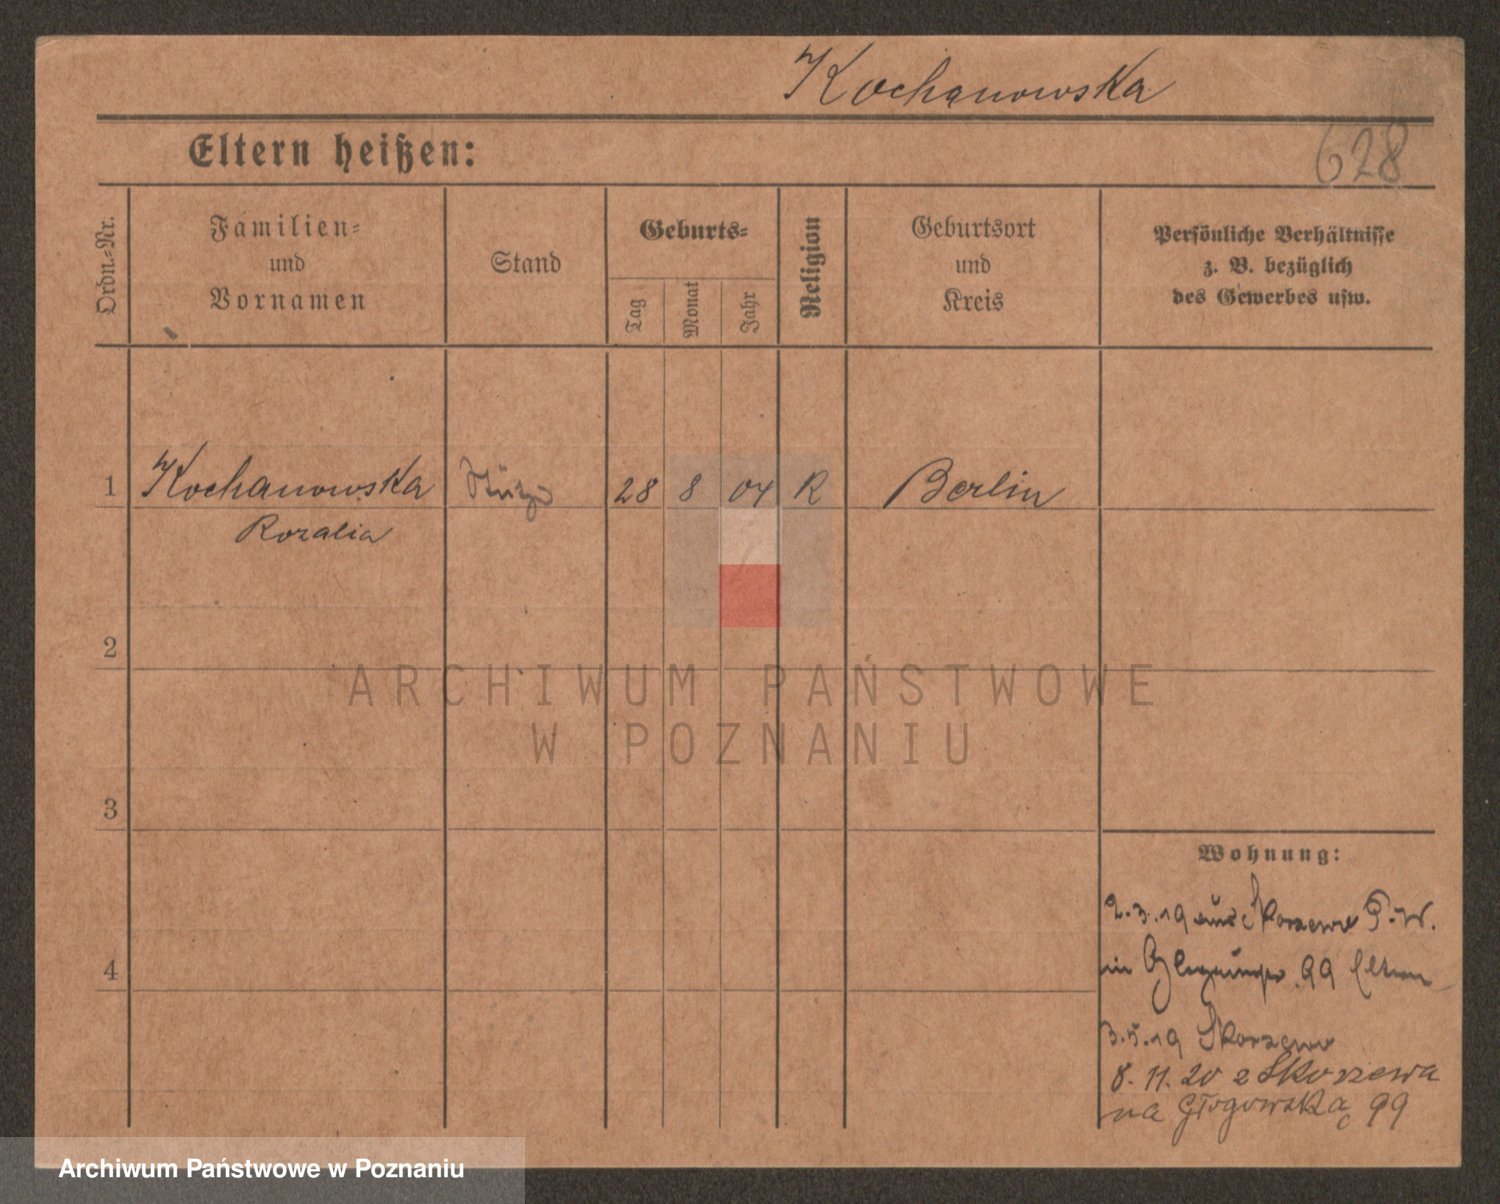 Kochanowska
Eltern heißen:
628
Ordn.-Nr.
Familien-
und
Vornamen
Stand
Geburts-
Tag
Monat
Jahr
Religion
Geburtsort
und
Kreis
Persönliche Verhältnisse
z. B. bezüglich
des Gewerbes usw.
1 Kochanowska Stütze 28 8 04 R Berlin
Rozalia
2
ARCHIWUM PAŃSTWOWE
W POZNANIU
3
Wohnung:
2.3.19 aus Skorzewo P.-W.
in 99 Eltern
4
3.5.19 Skorzewo
8.11.20 z Skorzewa
na Głogowską 99
Archiwum Państwowe w Poznaniu